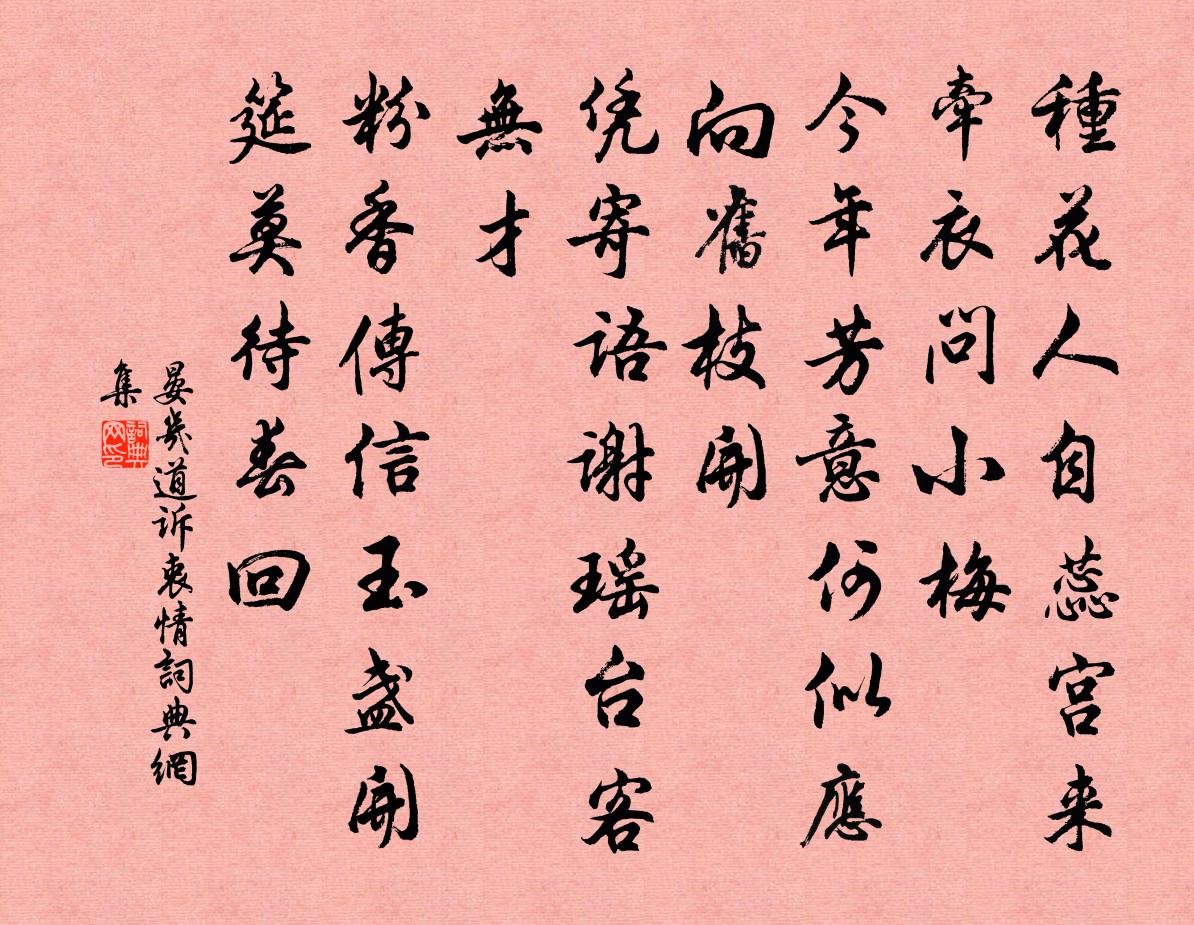 種花人自蕊宮来
牽衣問小梅
今年芳意何似應
向舊枝開
凭寄語谢瑶台客
無才
粉香傳信玉盏開
筵莫待春回
晏幾道訴衷情詞典網
集
詞典網印